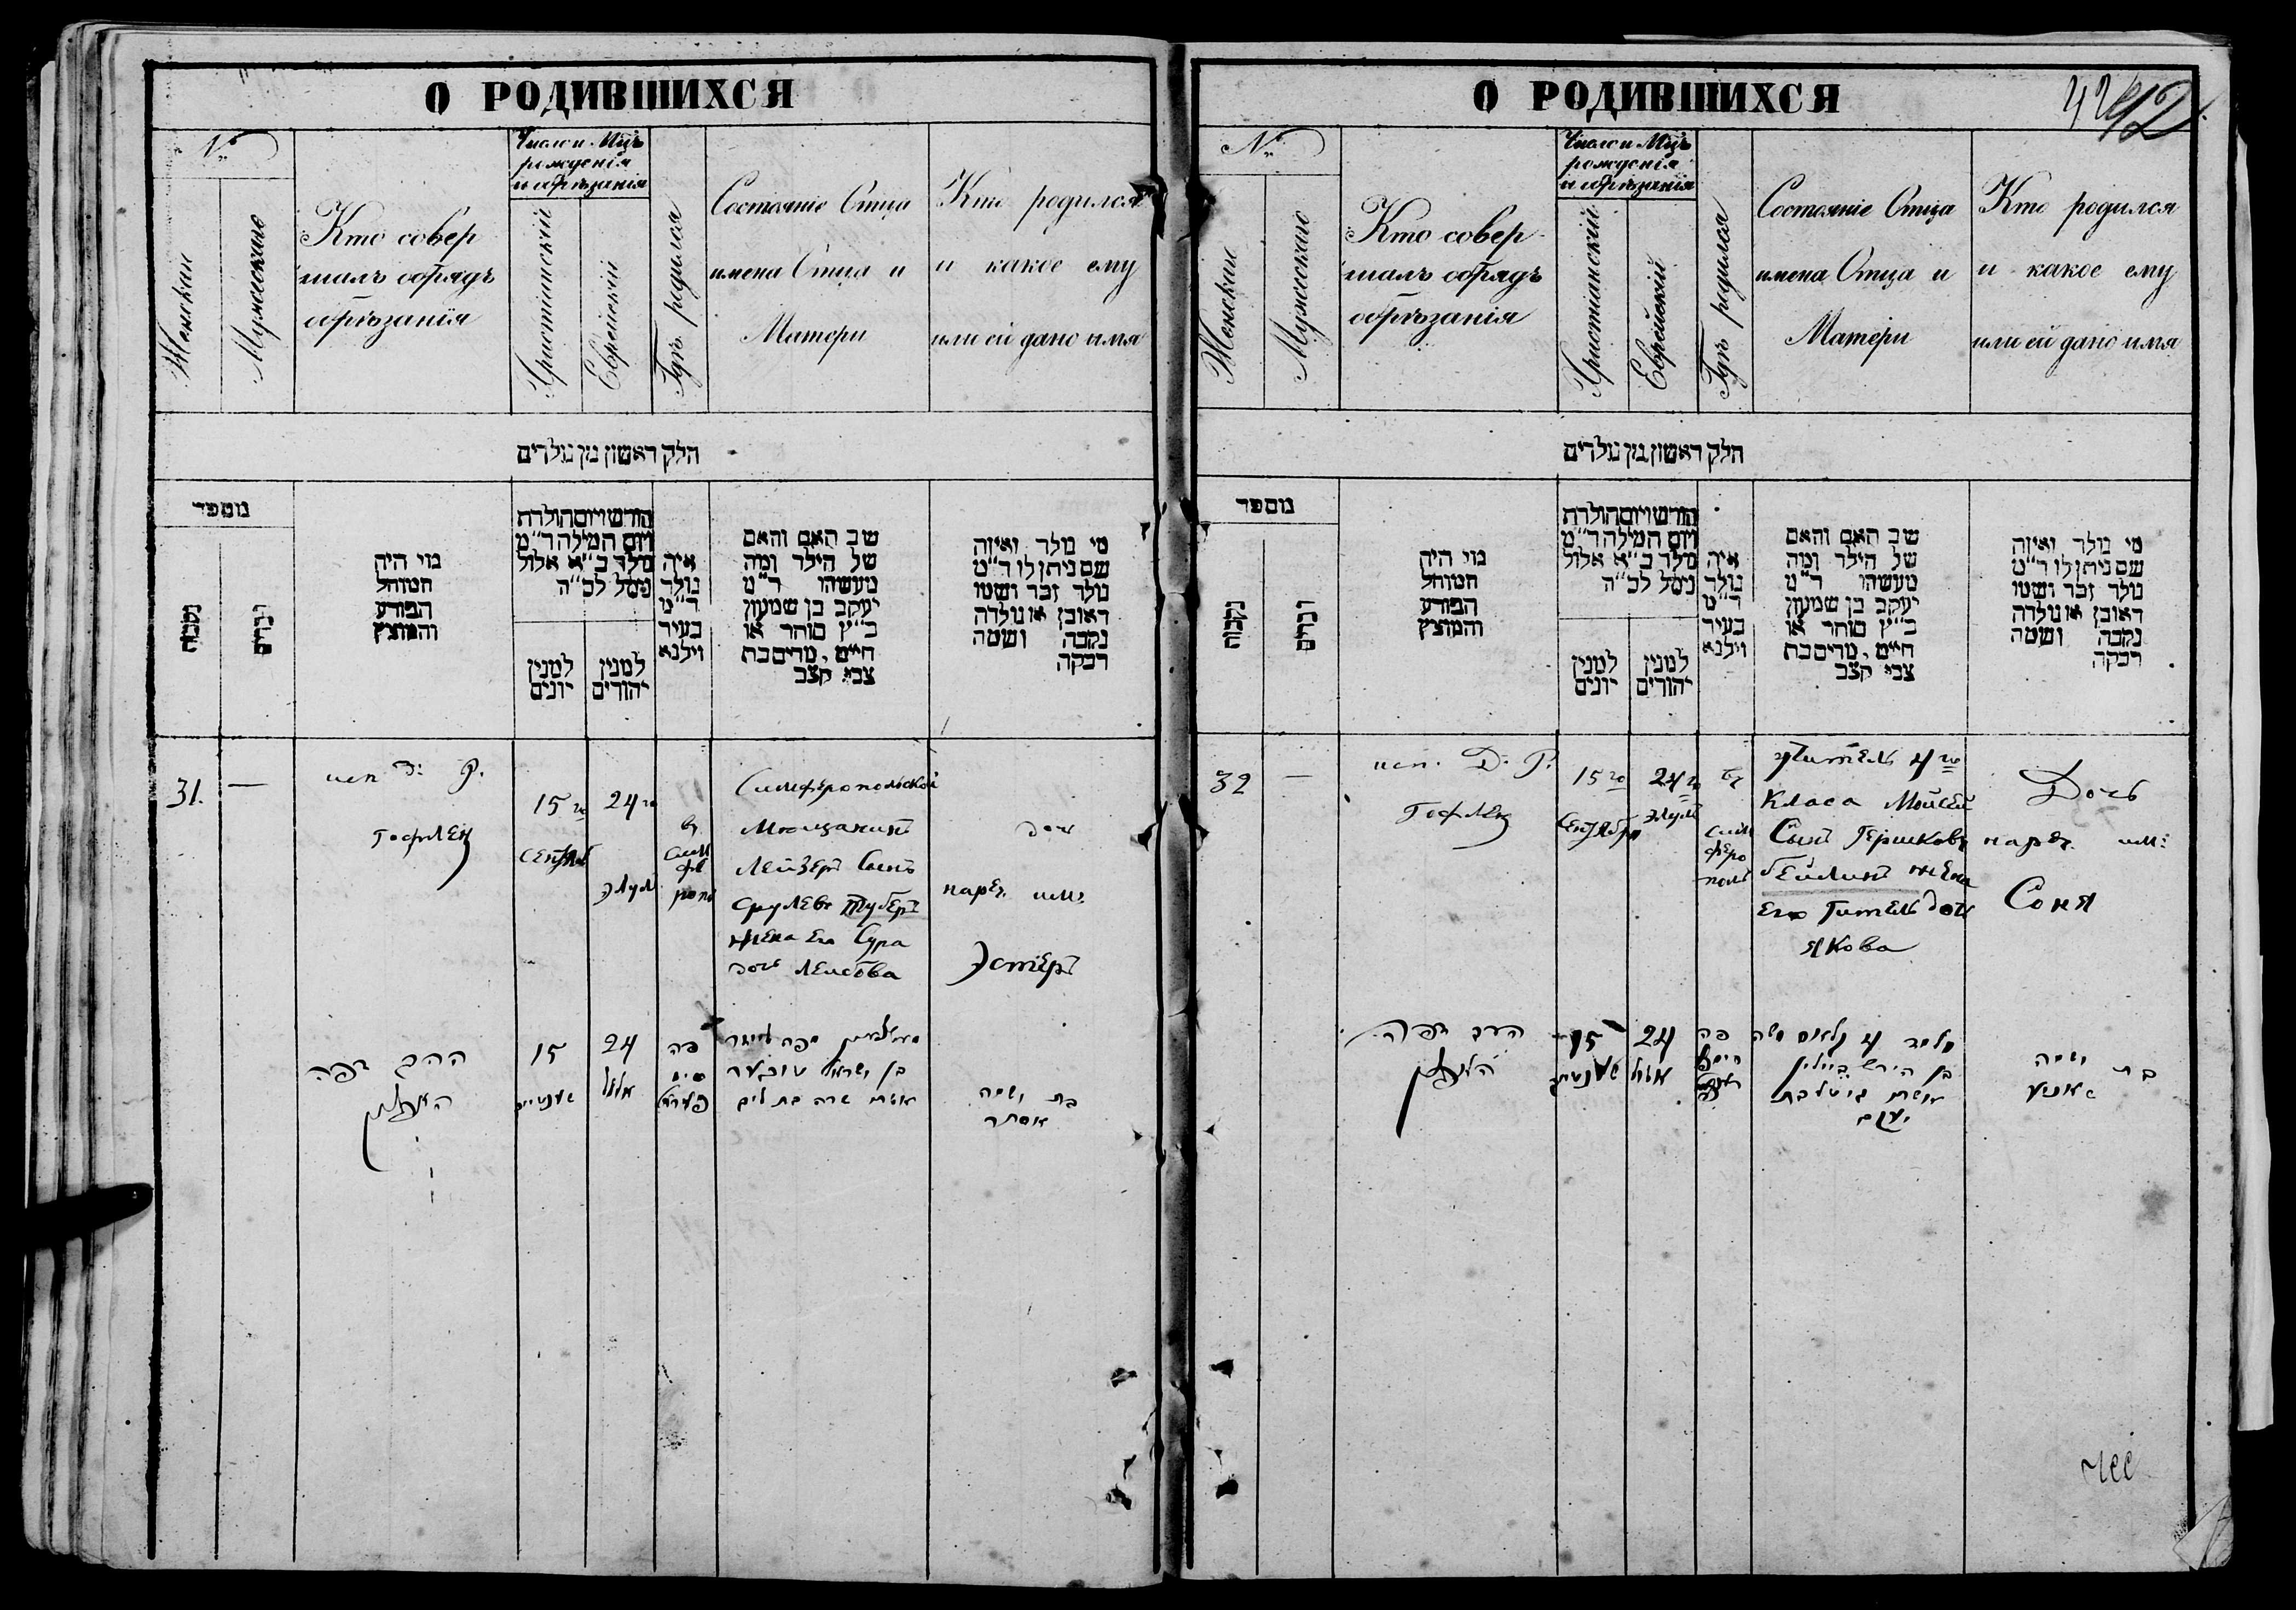 О РОДИВШИХСЯ
№
Женскии
Мужескаго
Кто совер
шалъ обрядъ
обрѣзанія
Число и Мцъ
рожденія
и обрѣзанія
Христіанскій
Еврейскій
Гдѣ родился
Состояніе Отца
имена Отца и
Матери
Кто родился
и какое ему
или ей дано имя
חלק ראשון מן נולדים
מספר
נקבות
זכרים
מי היה
המוהל
הפורע
והמוצץ
חודש ויום הולדת
ויום המילה ד״מ
נולד כ״א אלול
נימל לכ״ה
למנין
יונים
למנין
יהודים
איה
נולד
ד״מ
בעיר
וילנא
שב האם והאם
של הילד ומה
מעשהו ד״מ
יעקב בן שמעון
כ״ץ סוחר או
חייט, מרים בת
צבי קצב
מי נולד ואיזה
שם ניתן לו ד״מ
נולד זכר ושמו
ראובן או נולדה
נקבה ושמה
רבקה
31.
—
исп Д: Р.
Гофлен
15го
Сентяб
24го
Элул
въ
сим
фе
ропо
Симферопольской
Мющанинъ
Лейзеръ Сынъ
Срулевъ Туберъ
жена его Сура
дочь
дочь
нареч. им:
Эстеръ
15
24
אלול
פה
בן ישראל
אשתו שרה בת
בת ושמה
אסתר
О РОДИВШИХСЯ
42
42
№
Женскии
Мужескаго
Кто совер
шалъ обрядъ
обрѣзанія
Число и Мцъ
рожденія
и обрѣзанія
Христіанскій
Еврейскій
Гдѣ родился
Состояніе Отца
имена Отца и
Матери
Кто родился
и какое ему
или ей дано имя
חלק ראשון מן נולדים
מספר
נקבות
זכרים
מי היה
המוהל
הפורע
והמוצץ
חודש ויום הולדת
ויום המילה ד״מ
נולד כ״א אלול
נימל לכ״ה
למנין
יונים
למנין
יהודים
איה
נולד
ד״מ
בעיר
וילנא
שב האם והאם
של הילד ומה
מעשהו ד״מ
יעקב בן שמעון
כ״ץ סוחר או
חייט, מרים בת
צבי קצב
מי נולד ואיזה
שם ניתן לו ד״מ
נולד זכר ושמו
ראובן או נולדה
נקבה ושמה
רבקה
32
—
исп. Д. Р.
Гофлен
15го
Сентября
24го
Элула
въ
сим
феро
полѣ
Житель 4го
Класа Мойсей
Сынъ Гершковъ
Бейлинъ жена
его Гитель дочь
Якова
Дочь
нареч. им:
Соня
15
24
אלול
פה
בן הירש ביילין
אשתו גיטל בת
יעקב
בת ושמה
סאניע